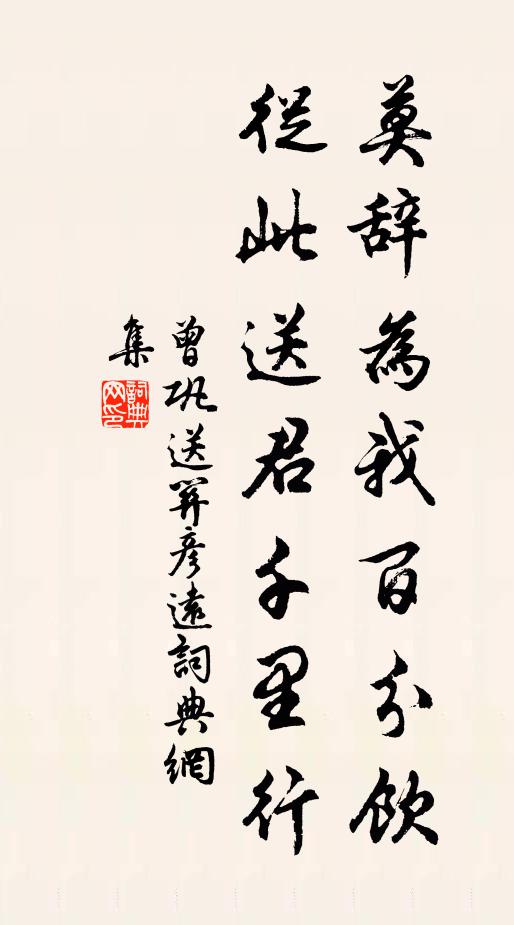 莫辭為我百分飲
從此送君千里行
曾鞏送關彥遠詞典網
集
詞典
網印